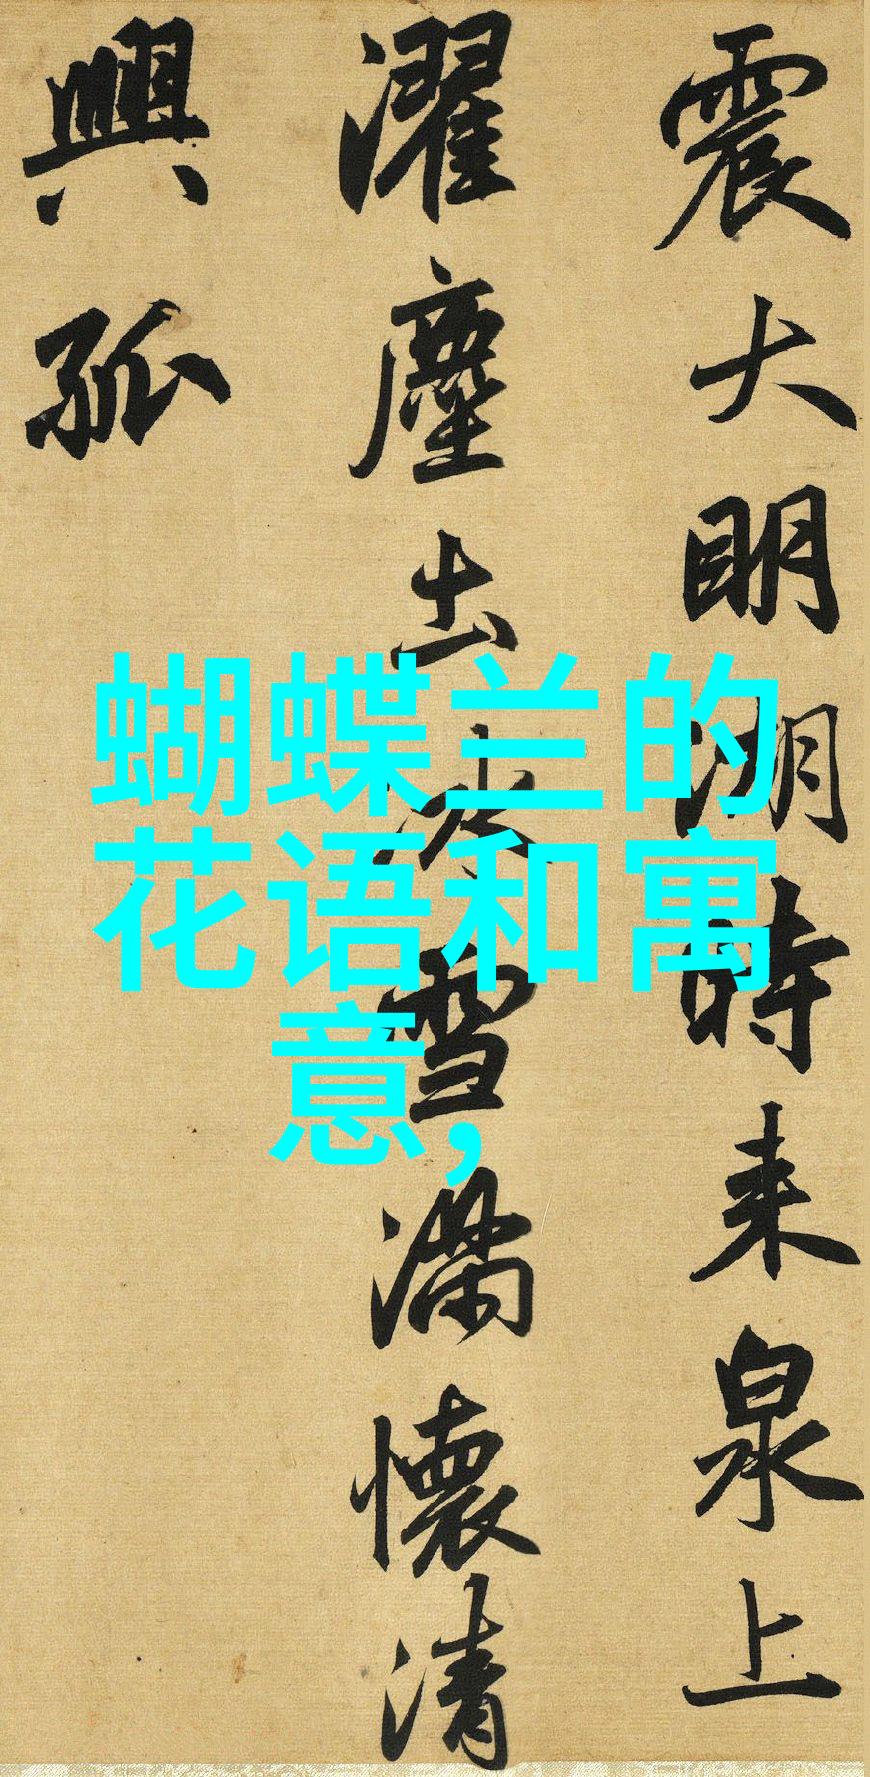 震大明湖時来泉上
濯塵土冰雪満懷清
興孤
蝴蝶兰的
花语和寓
意,